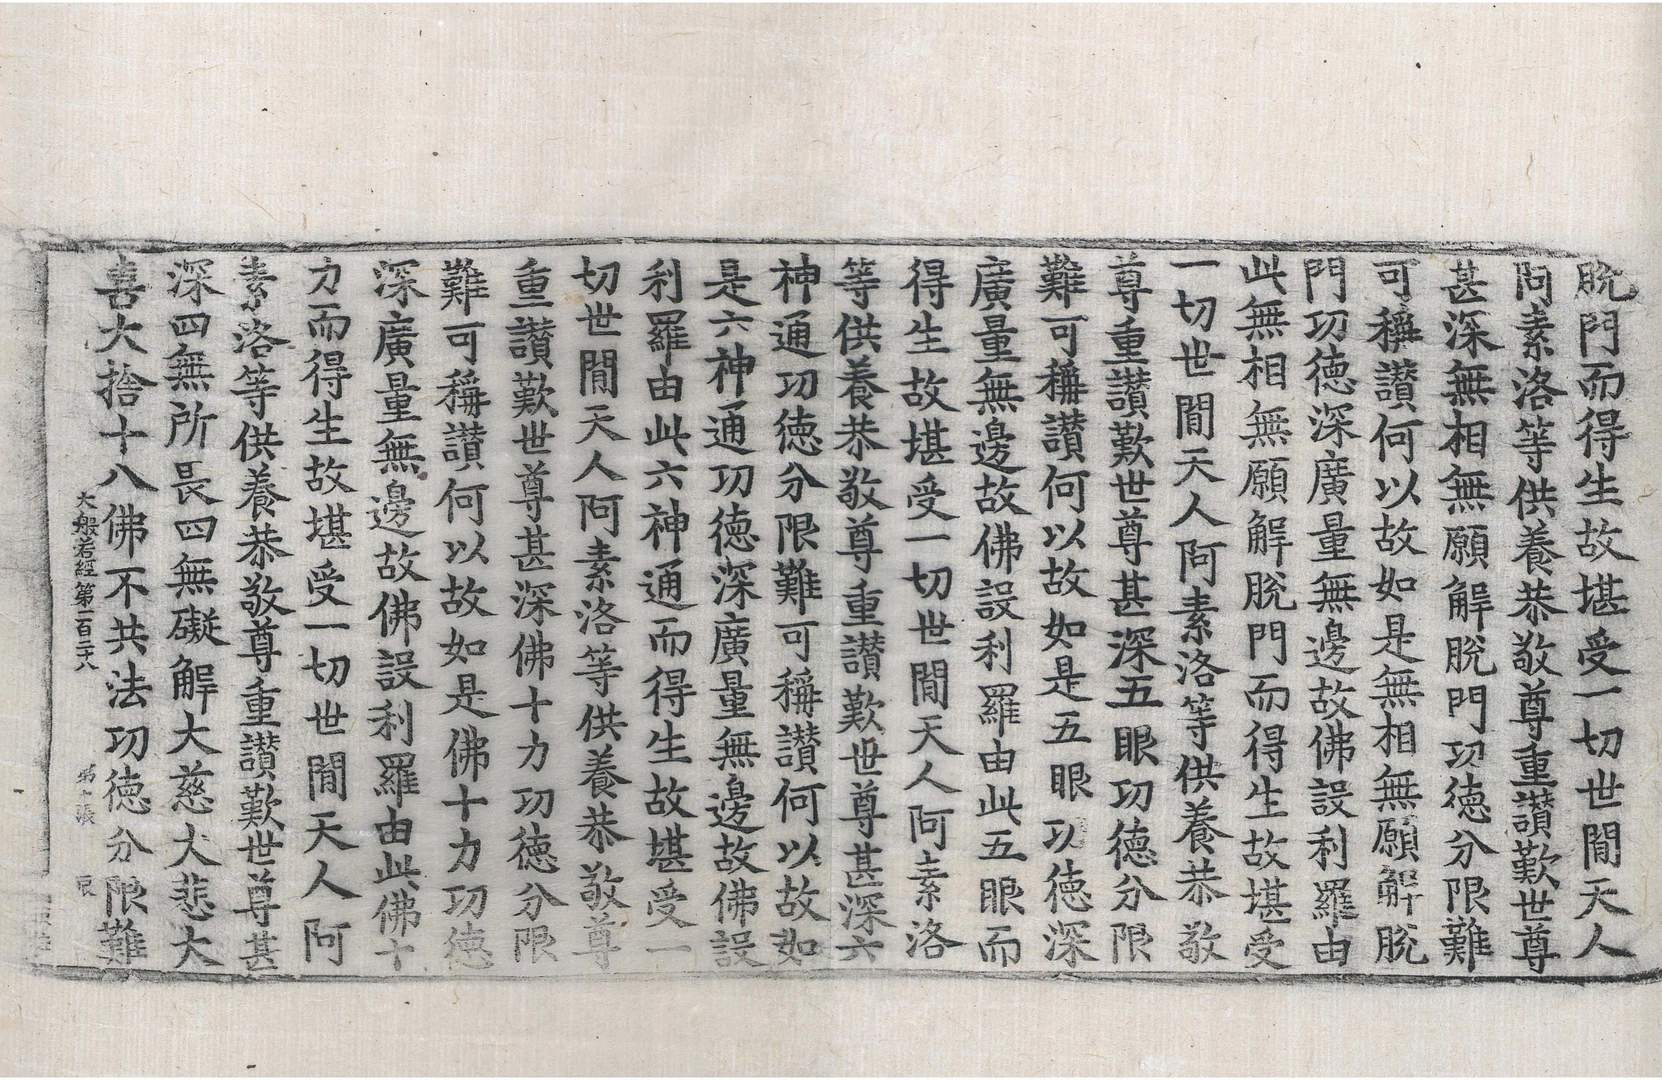 脫門而得生故堪受一切世閒天人
阿素洛等供養恭敬尊重讚歎世尊
甚深無相無願解脫門功德分限難
可稱讚何以故如是無相無願解脫
門功德深廣量無邊故佛設利羅由
此無相無願解脫門而得生故堪受
一切世閒天人阿素洛等供養恭敬
尊重讚歎世尊甚深五眼功德分限
難可稱讚何以故如是五眼功德深
廣量無邊故佛設利羅由此五眼而
得生故堪受一切世閒天人阿素洛
等供養恭敬尊重讚歎世尊甚深六
神通功德分限難可稱讚何以故如
是六神通功德深廣量無邊故佛設
利羅由此六神通而得生故堪受一
切世閒天人阿素洛等供養恭敬尊
重讚歎世尊甚深佛十力功德分限
難可稱讚何以故如是佛十力功德
深廣量無邊故佛設利羅由此佛十
力而得生故堪受一切世閒天人阿
素洛等供養恭敬尊重讚歎世尊甚
深四無所畏四無礙解大慈大悲大
喜大捨十八佛不共法功德分限難
大般若經第一百二十八 第十張